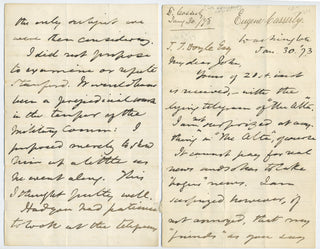 E. Casserly
Jany 30/73
Eugene Casserly
Washington
Jan. 30. '73
J. T. Doyle Esq
My dear John,
Yours of 21st inst
is received, – with the
lying telegram of the Alta.
I am not surprised at any
thing in "The Alta" of course
It cannot pay for real
news and so has to take
bogus news. I am
surprised however, if
not annoyed, that my
"friends" as you say
the only subject we
were then considering.
I did not propose
to examine or refute
Stanford. It would have
been a prejudicial
in the temper of the
Military Comm: I
proposed merely to
him up a little as
he went along. This
I thought pretty well.
Had you had patience
to look at the